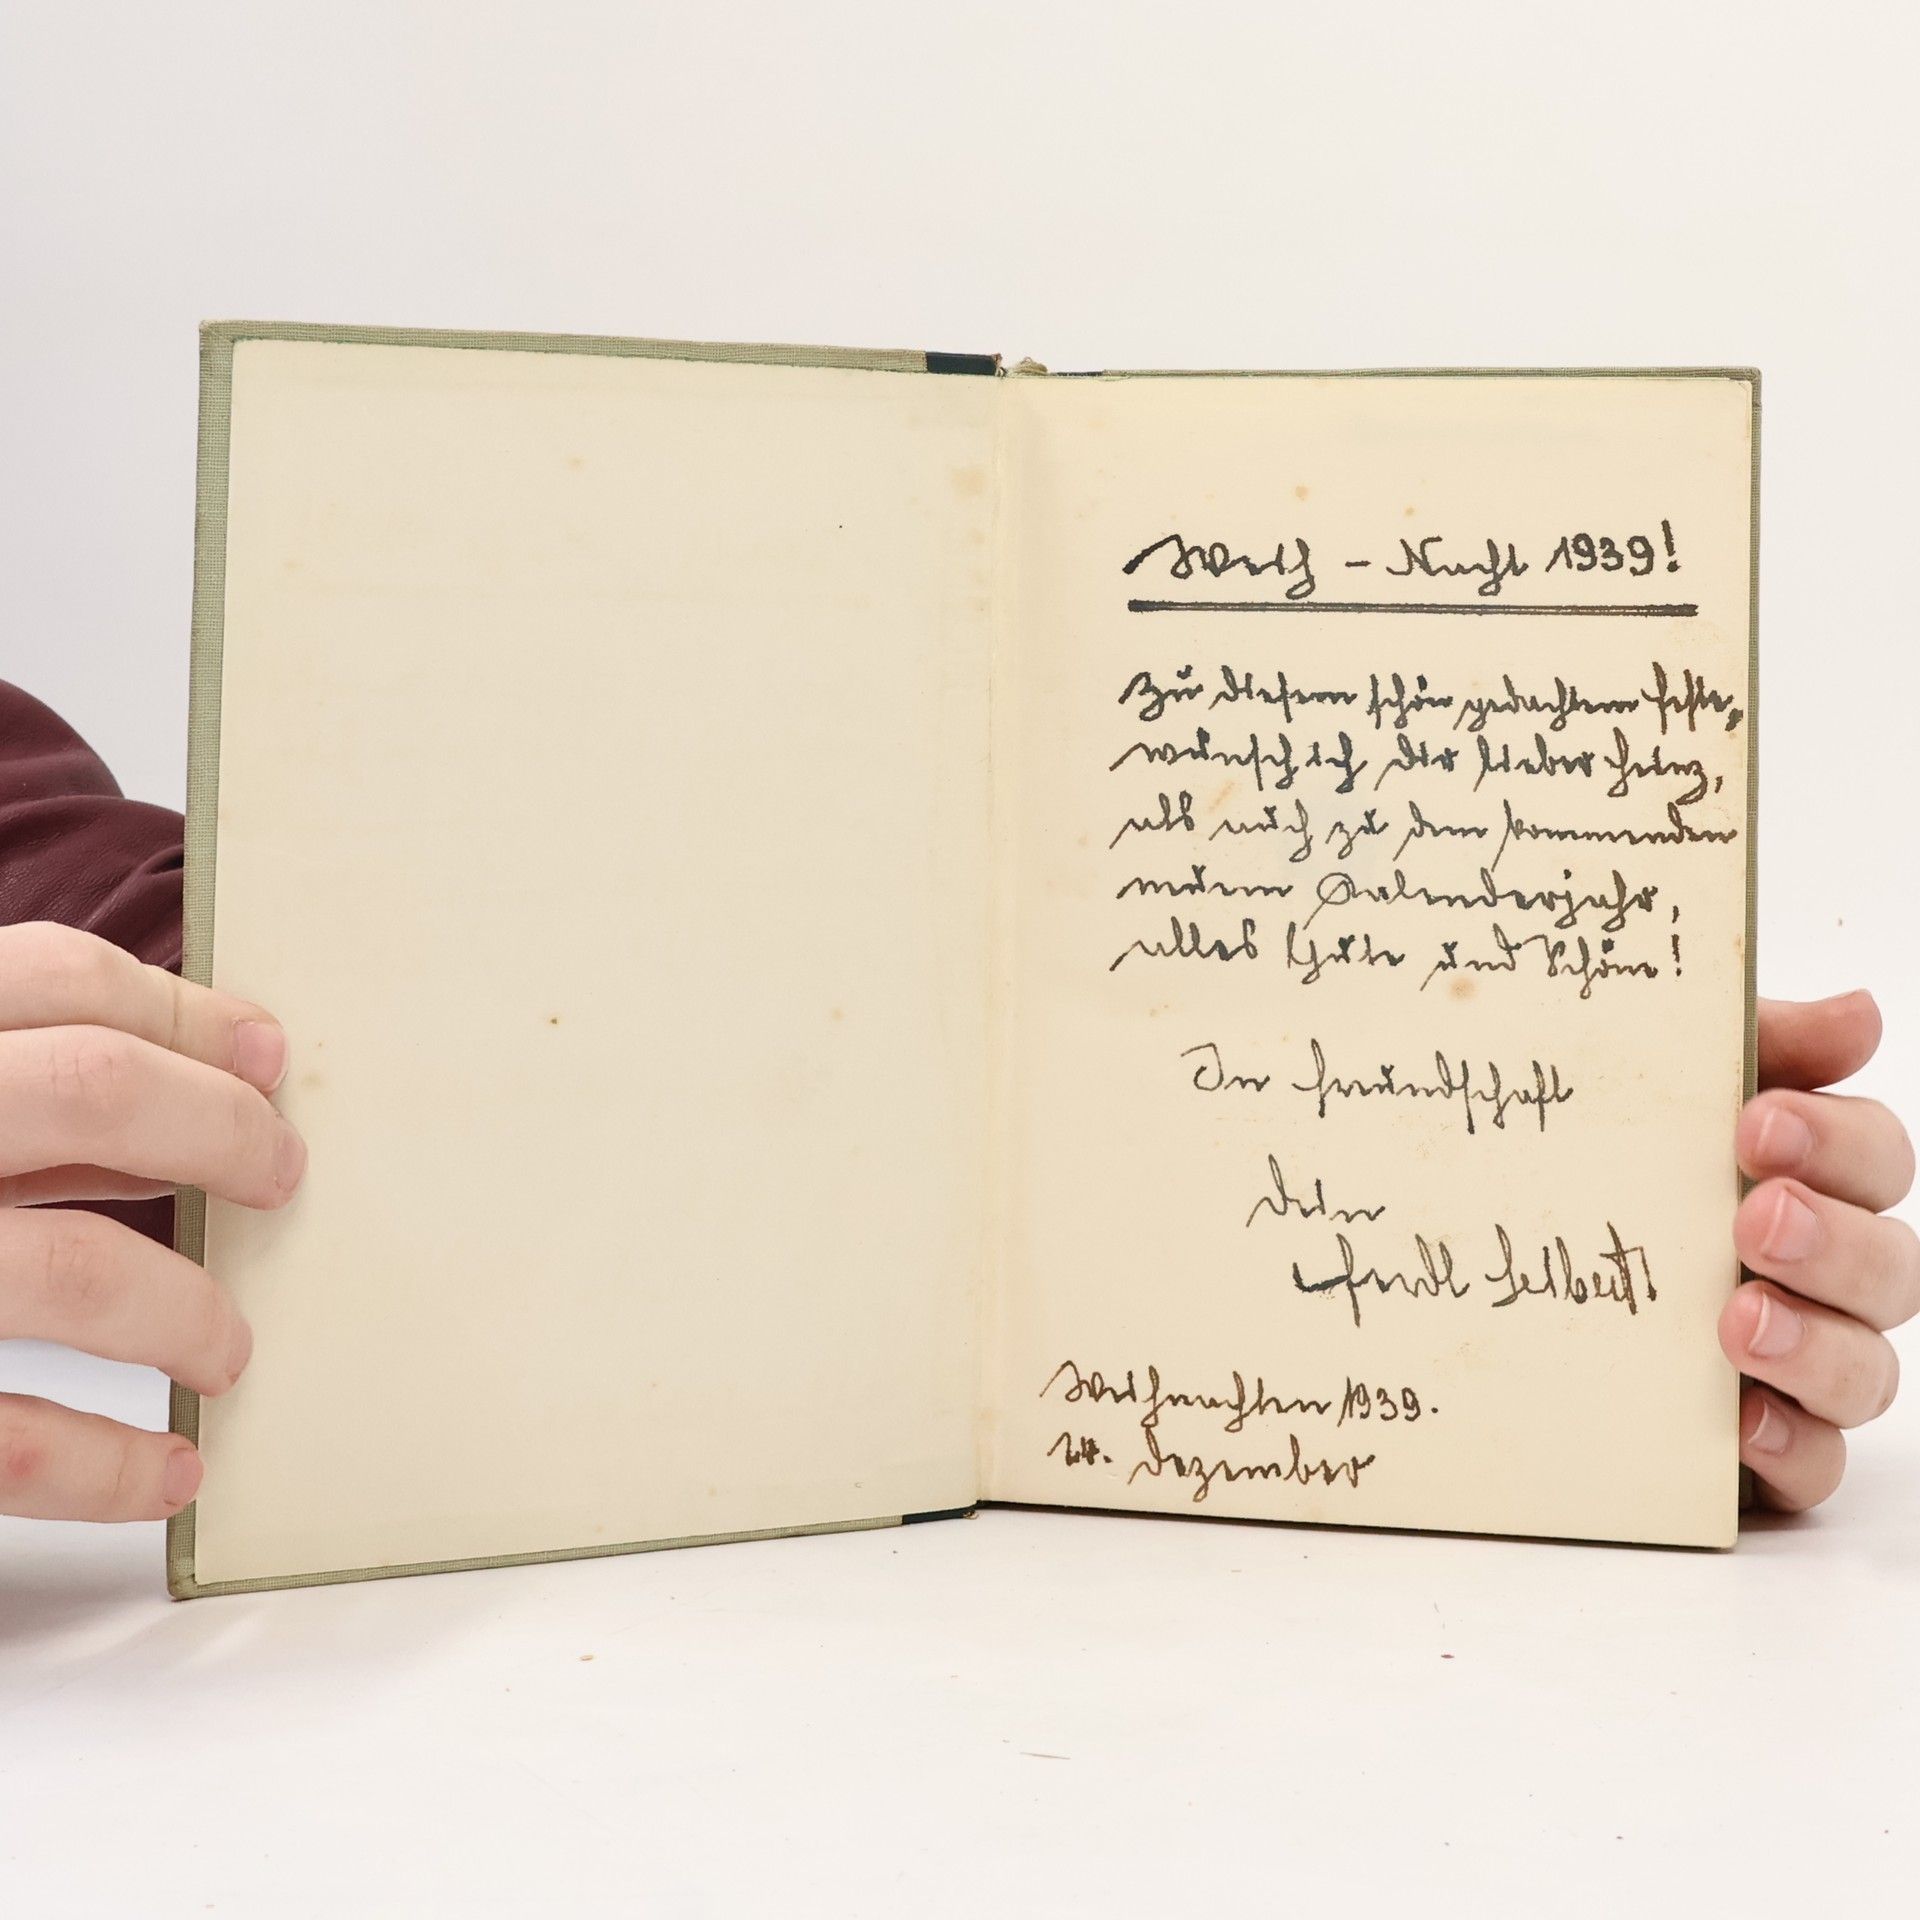 Weih - Nacht 1939!
Zu diesem schön gedachtem Feste,
wünsch ich dir lieber Heinz,
als auch zu dem kommenden
neuem Kalenderjahr,
alles Gute und Schöne!
In Freundschaft
Dein
Ferdl
Weihnachten 1939.
24. Dezember